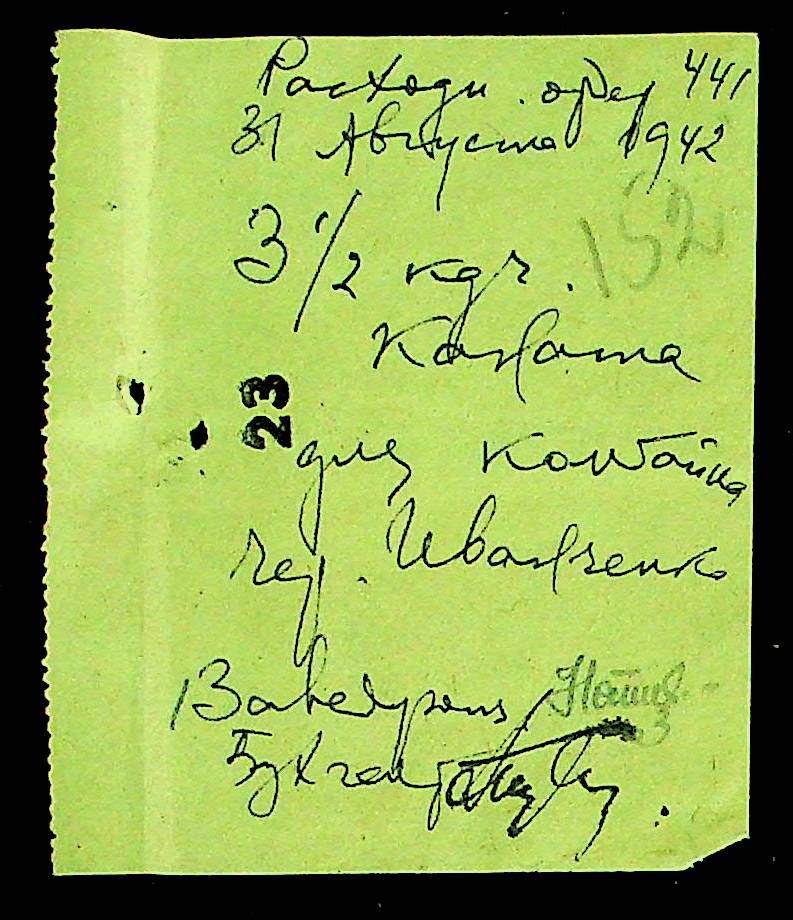 Расходн. ордер 441
31 Августа 1942
152
3 1/2 кгр.
Каната
23
для комбайна
чер. Иванченко
Заведующ.
Бухгалтер